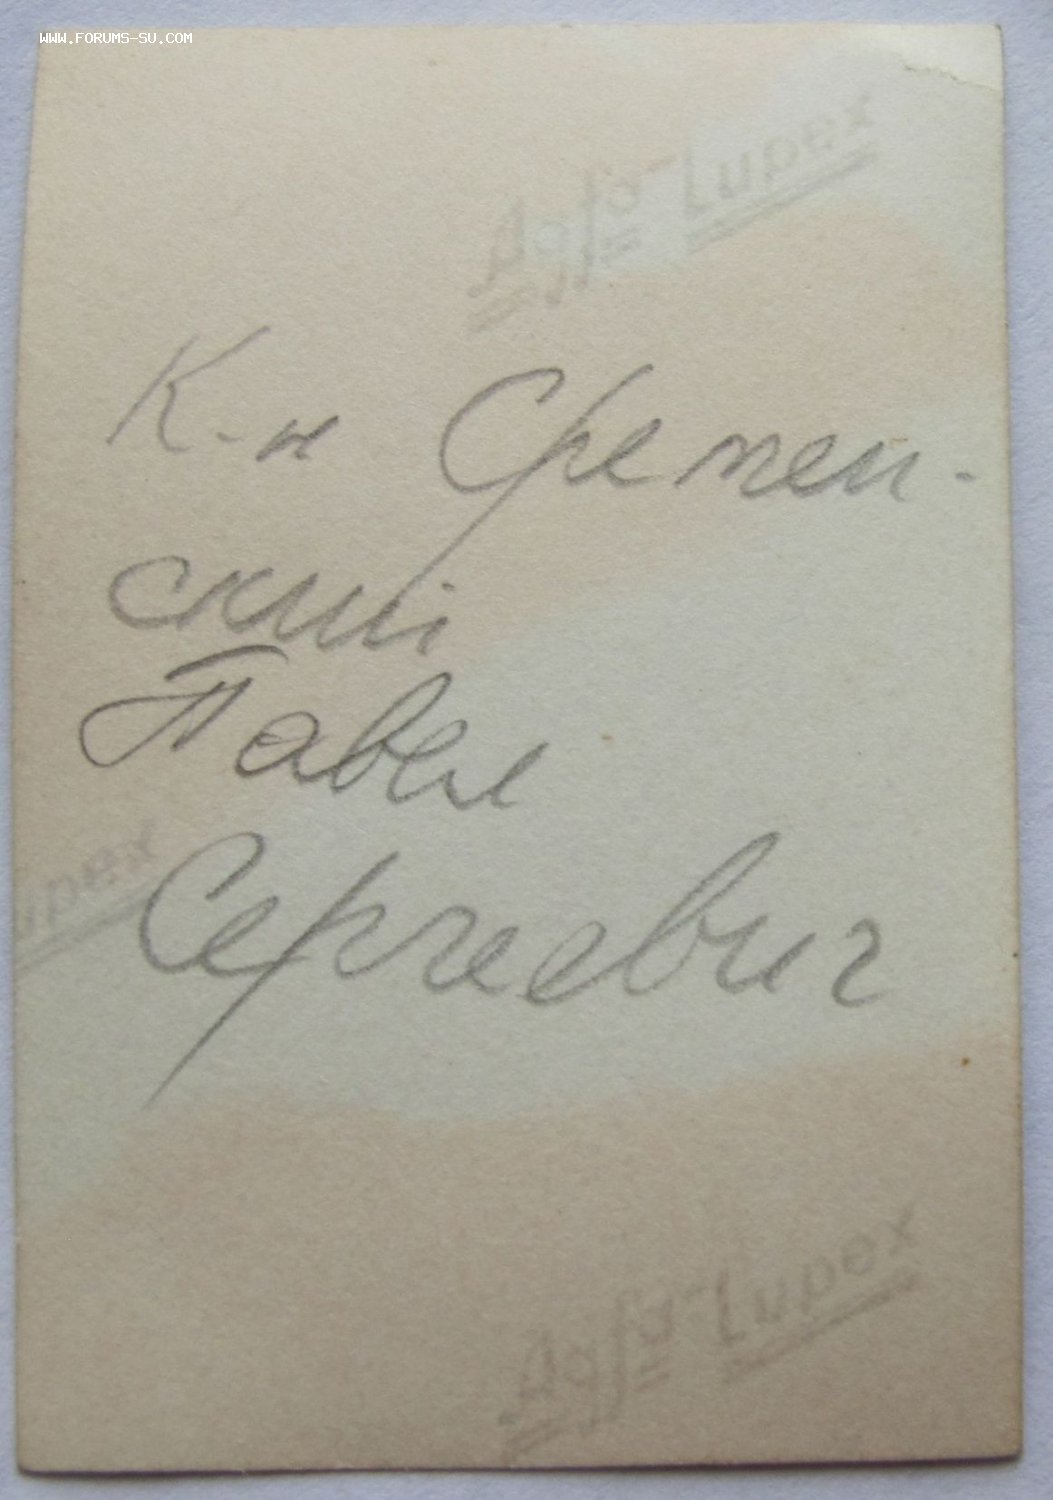 www.forums-su.com
Agfa-Lupex
К-н Сремен-
ский
Павел
upex
Сергеевич
Agfa-Lupex